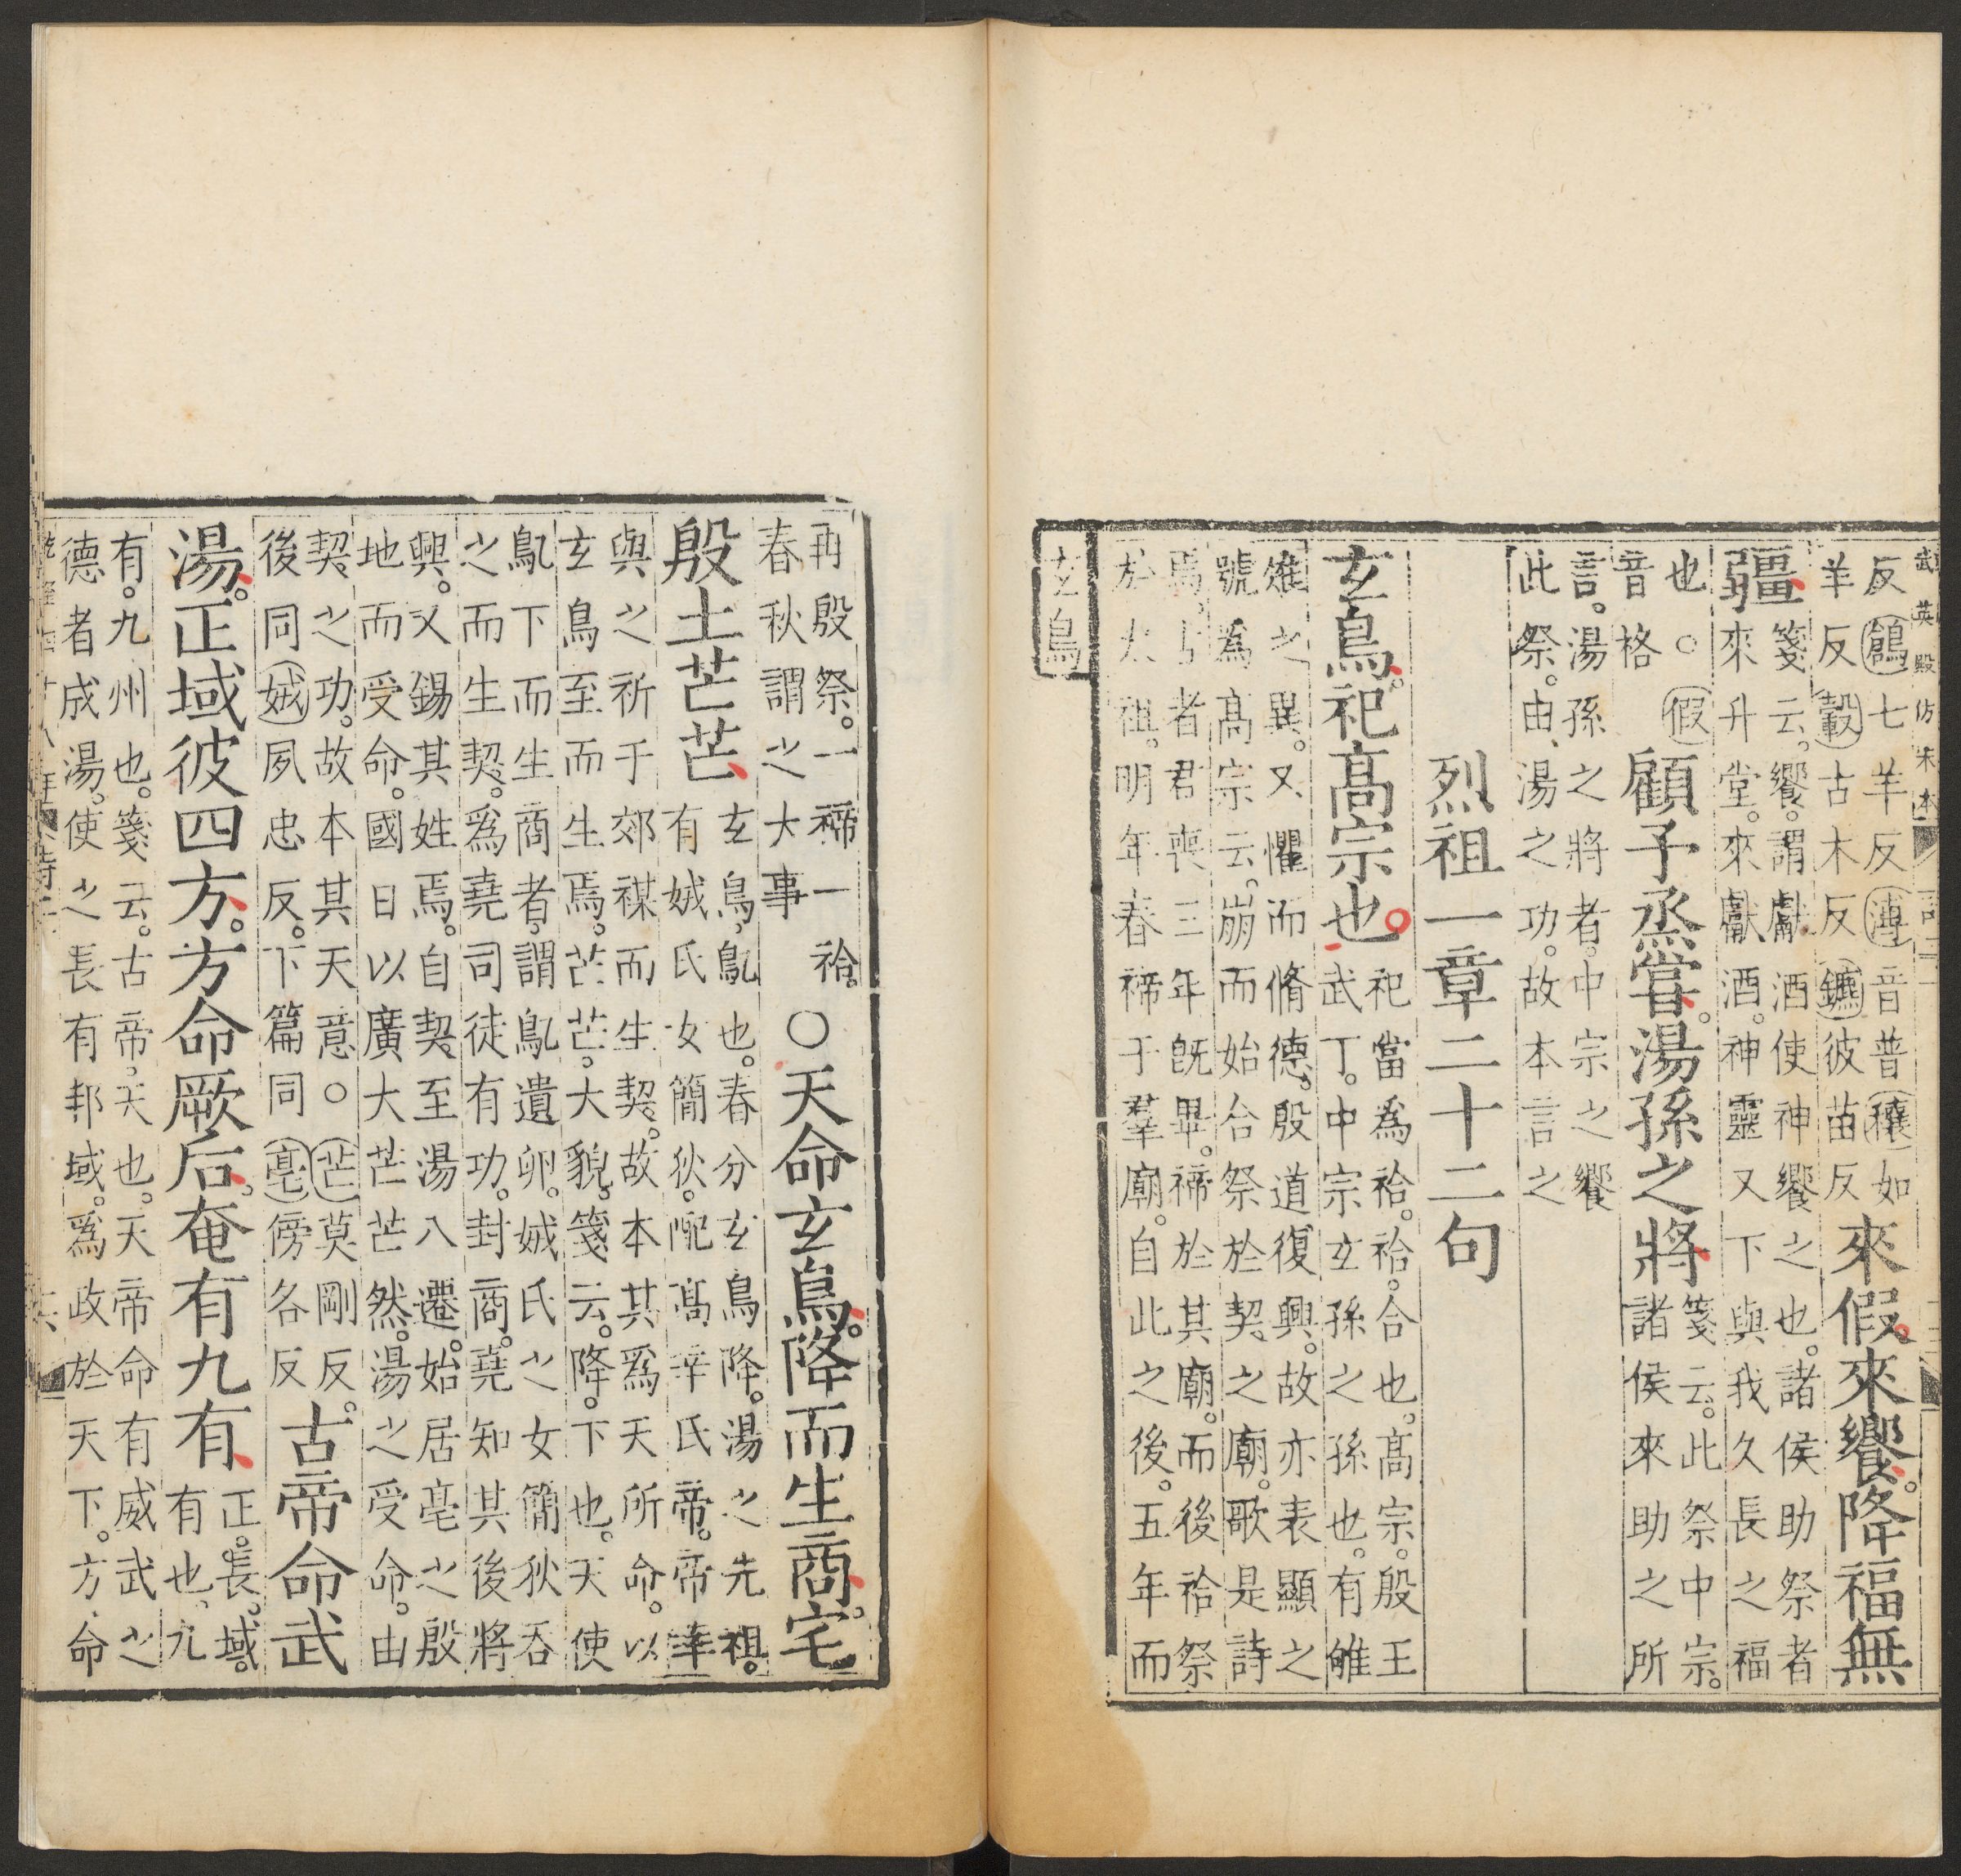 武英殿仿宋本
反(鶬)七羊反(溥)音普(穰)如
羊反(轂)古木反(鑣)彼苗反
來假。來饗。降福無
疆
箋云。饗。謂獻酒使神饗之也。諸侯助祭者
來升堂。來獻酒。神靈又下與我久長之福
也○(假)
音格
顧予烝嘗。湯孫之將
箋云。此祭中宗。
諸侯來助之所
言。湯孫之將者。中宗之饗
此祭。由湯之功。故本言之
烈祖一章二十二句
玄鳥。祀高宗也。
祀當為祫。祫。合也。高宗。殷王
武丁。中宗玄孫之孫也。有雊
雉之異。又懼而脩德。殷道復興。故亦表顯之
號為高宗云。崩而始合祭於契之廟。歌是詩
焉。古者君喪三年旣畢。禘於其廟。而後祫祭
於太祖。明年春禘于羣廟。自此之後。五年而
玄鳥
再殷祭。一禘一祫。
春秋謂之大事
○天命玄鳥。降而生商。宅
殷土芒芒
玄鳥。鳦也。春分玄鳥降。湯之先祖。
有娀氏女簡狄。配高辛氏帝。帝率
與之祈于郊禖而生契。故本其爲天所命。以
玄鳥至而生焉。芒芒。大貌。箋云。降。下也。天使
鳦下而生商者。謂鳦遺卵。娀氏之女簡狄吞
之而生契。爲堯司徒。有功。封商。堯知其後將
興。又錫其姓焉。自契至湯八遷。始居亳之殷
地而受命。國日以廣大芒芒然。湯之受命。由
契之功。故本其天意○(芒)莫剛反。
後同(娀)夙忠反。下篇同(亳)傍各反
古帝命武
湯。正域彼四方。方命厥后。奄有九有
正。長。域。
有也。九
有。九州也。箋云。古帝。天也。天帝命有威武之
德者成湯。使之長有邦域。爲政於天下。方命